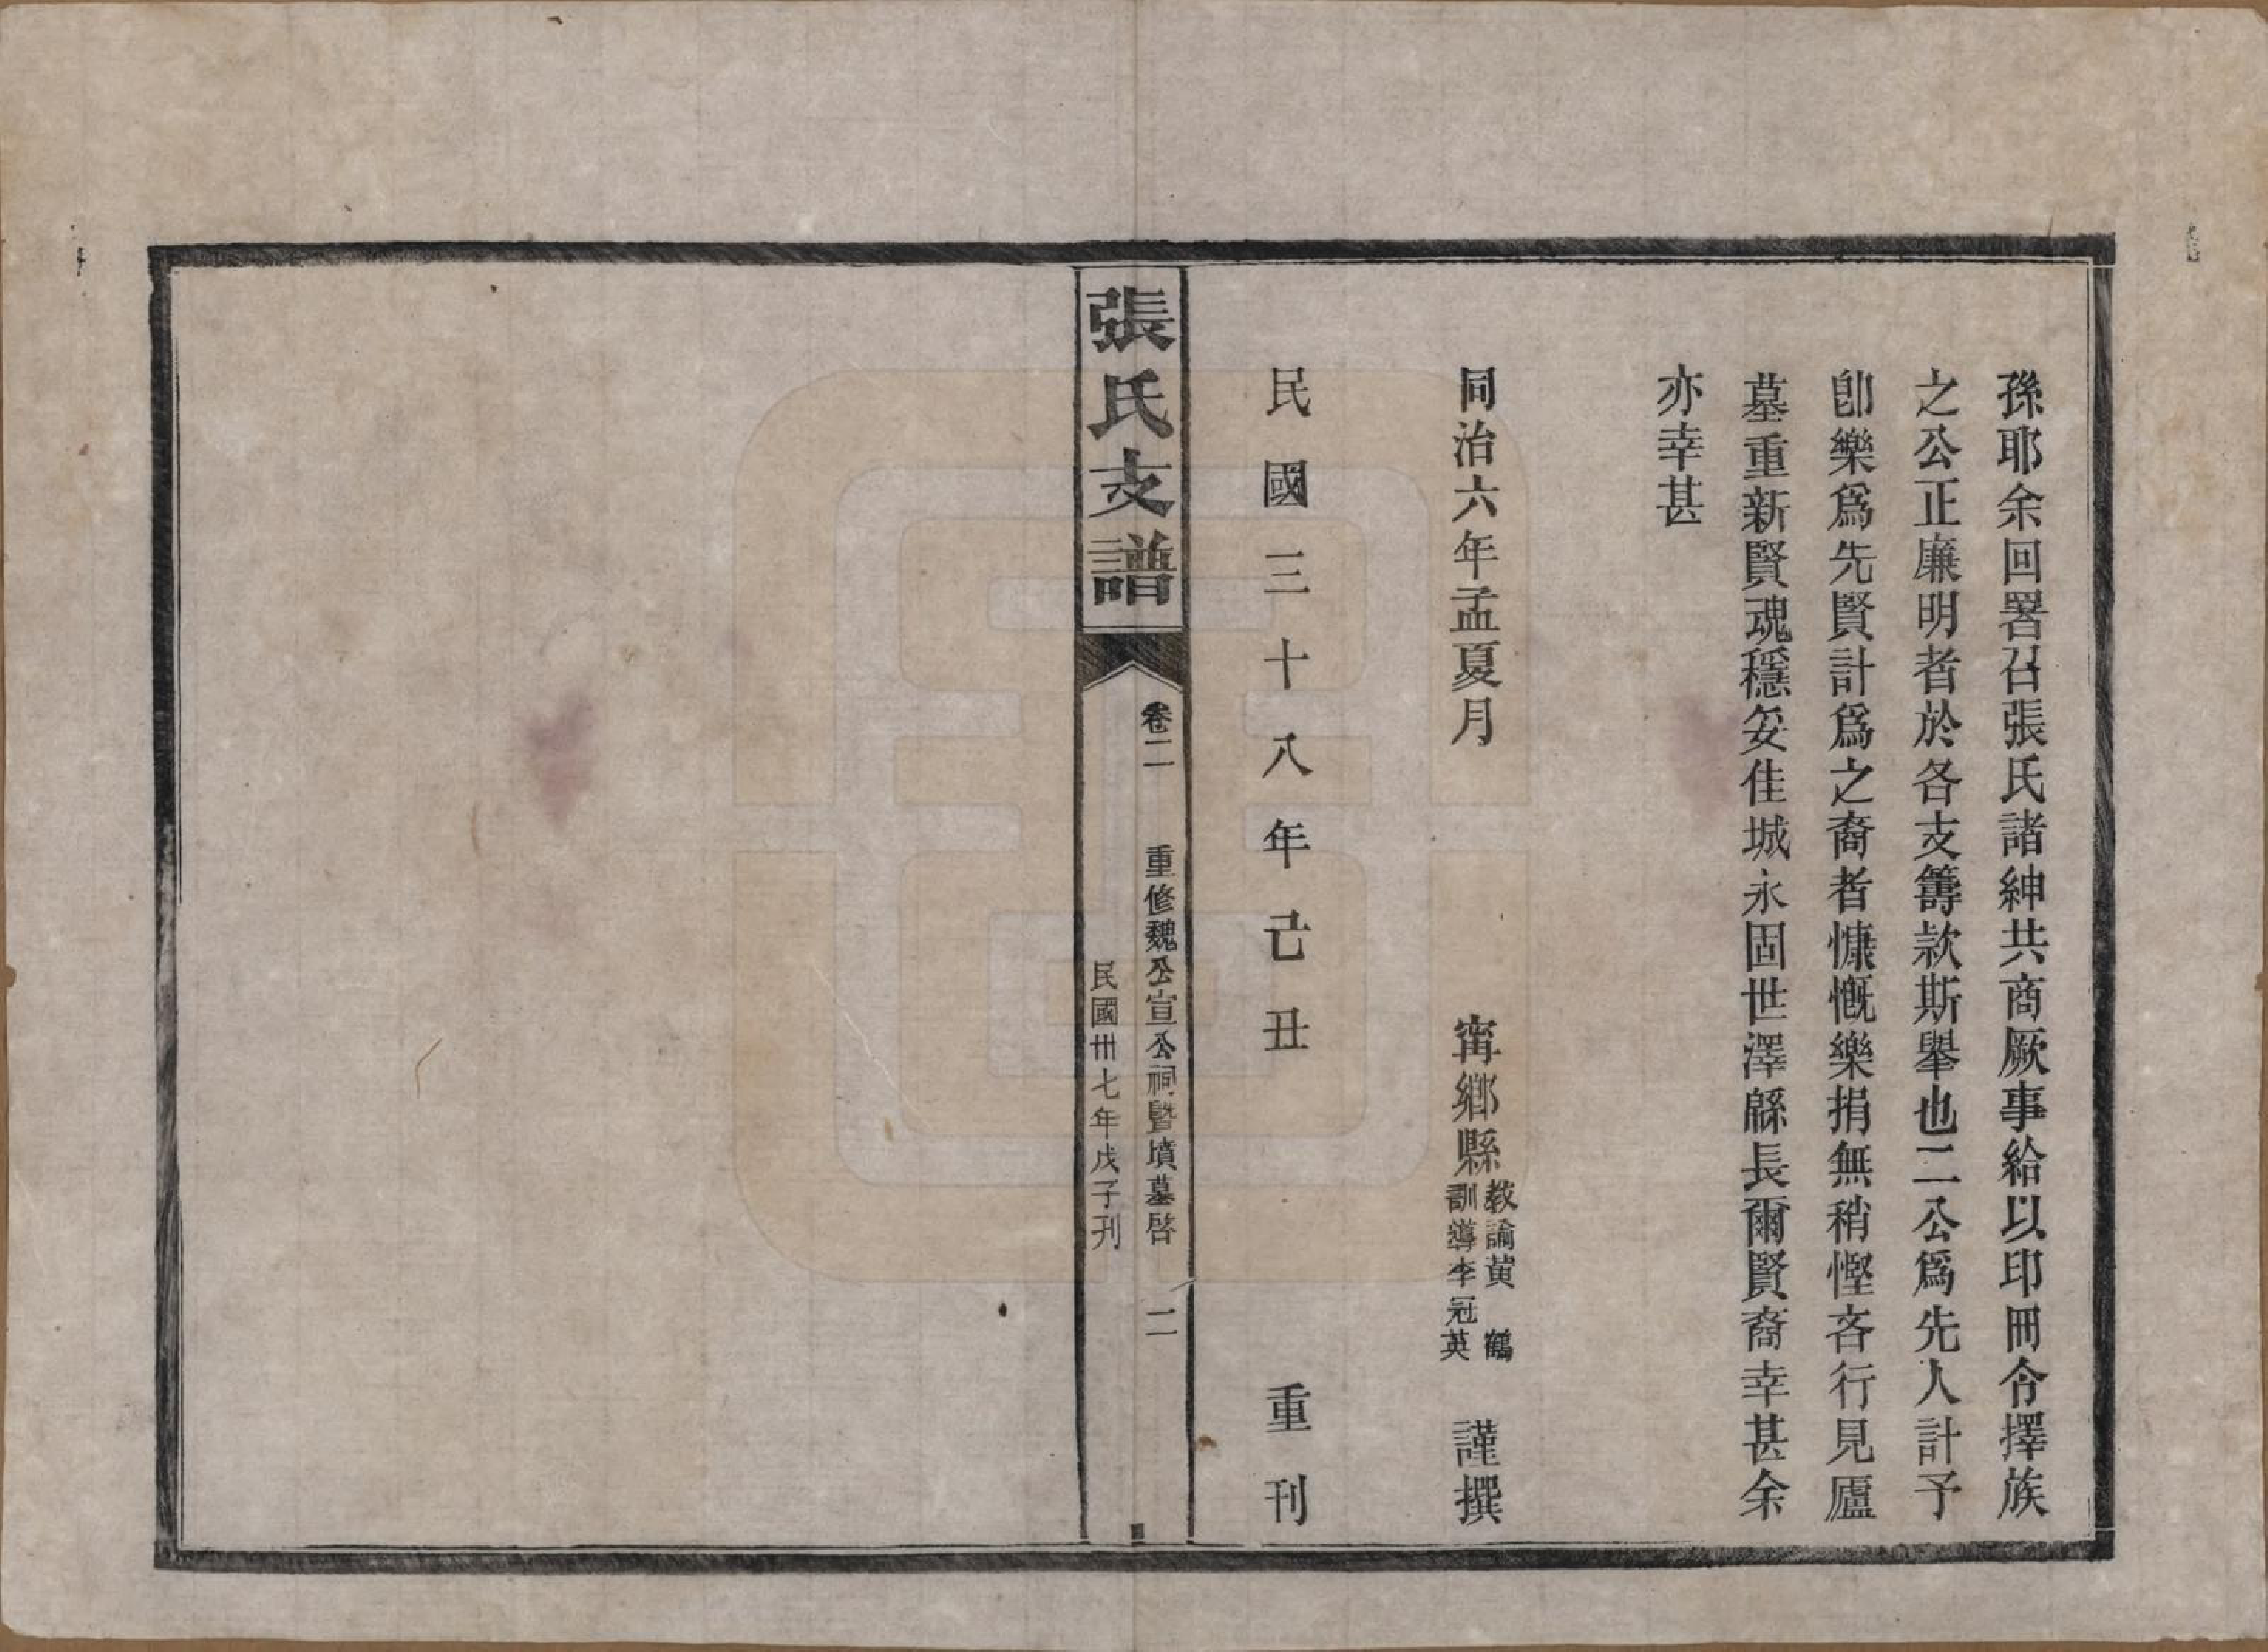 孫耶余回署召張氏諸紳共商厥事給以印冊令擇族
之公正廉明者於各支籌款斯舉也二公爲先人計予
卽樂爲先賢計爲之裔者慷慨樂捐無稍慳吝行見廬
墓重新賢魂穩妥佳城永固世澤緜長爾賢裔幸甚余
亦幸甚
同治六年孟夏月 甯鄉縣 教諭黃 鶴
訓導李冠英 謹撰
民國三十八年己丑 重刊
張氏支譜
卷二 重修魏公宣公祠暨墳墓啓 二
民國卅七年戊子刊